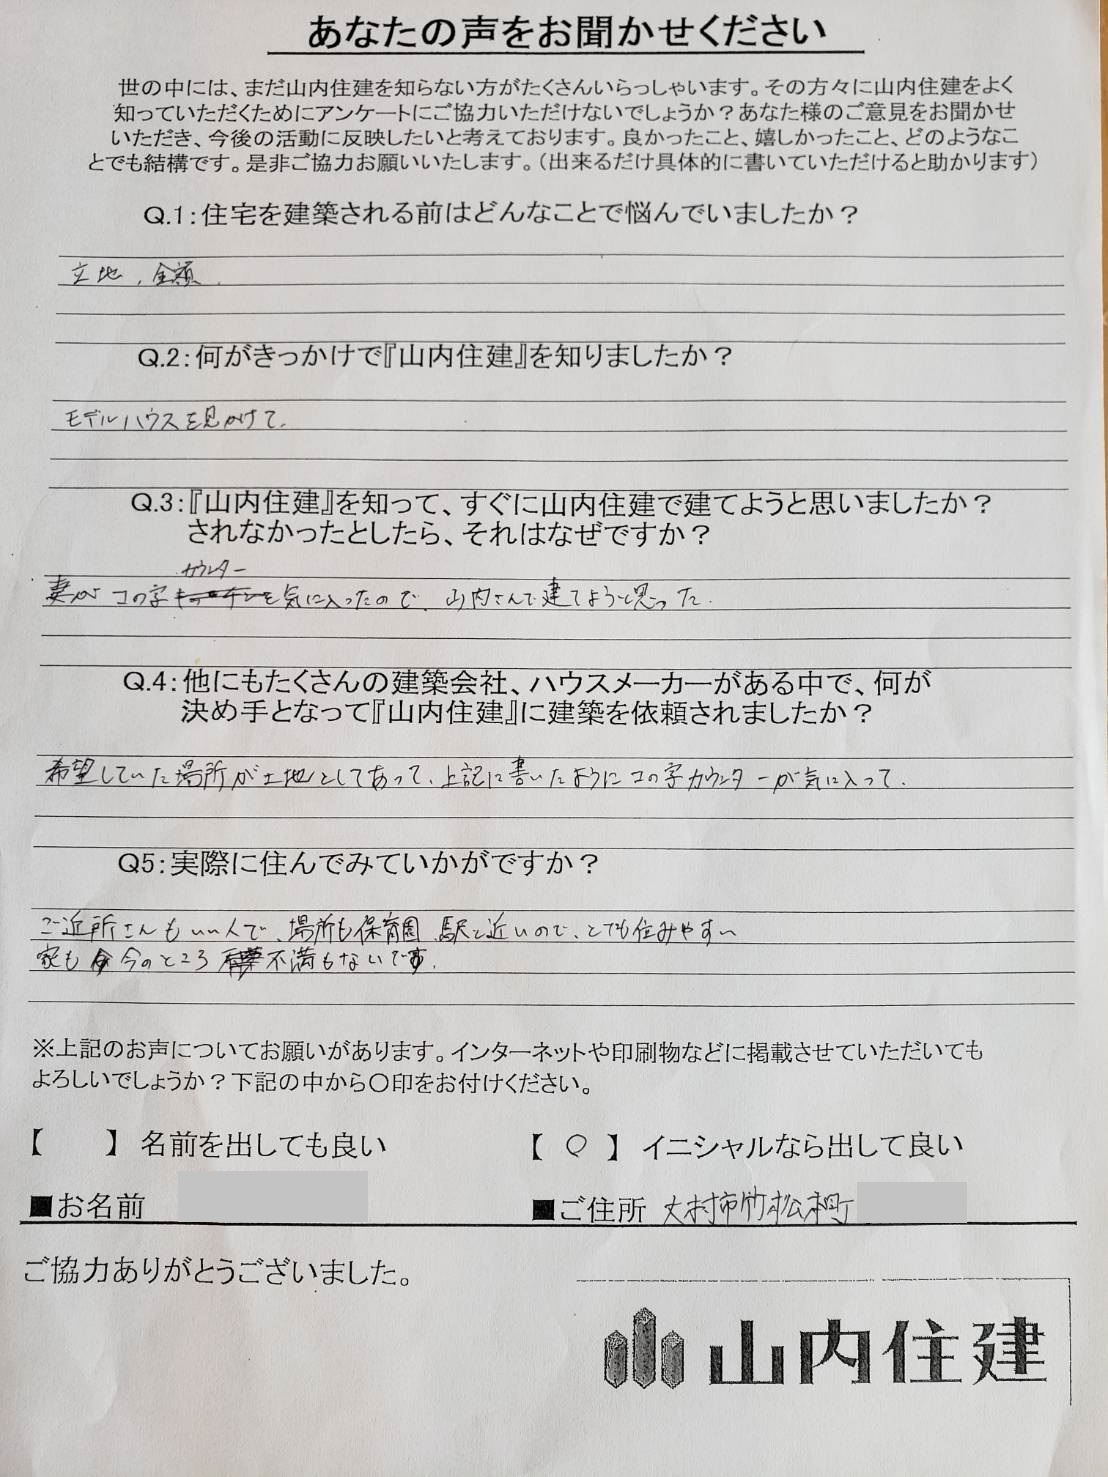 あなたの声をお聞かせください
世の中には、まだ山内住建を知らない方がたくさんいらっしゃいます。その方々に山内住建をよく
知っていただくためにアンケートにご協力いただけないでしょうか？あなた様のご意見をお聞かせ
いただき、今後の活動に反映したいと考えております。良かったこと、嬉しかったこと、どのようなこ
とでも結構です。是非ご協力お願いいたします。（出来るだけ具体的に書いていただけると助かります）
Q.1：住宅を建築される前はどんなことで悩んでいましたか？
立地、金額.
Q.2：何がきっかけで『山内住建』を知りましたか？
モデルハウスを見かけて。
Q.3：『山内住建』を知って、すぐに山内住建で建てようと思いましたか？
されなかったとしたら、それはなぜですか？
カウンター
妻が コの字を気に入ったので、山内さんで建てようと思った.
Q.4：他にもたくさんの建築会社、ハウスメーカーがある中で、何が
決め手となって『山内住建』に建築を依頼されましたか？
希望していた場所が土地としてあって、上記に書いたようにコの字カウンターが気に入って.
Q5：実際に住んでみていかがですか？
ご近所さんもいい人で、場所も保育園、駅と近いので、とても住みやすい
家も 今のところ 不満もないです.
※上記のお声についてお願いがあります。インターネットや印刷物などに掲載させていただいても
よろしいでしょうか？下記の中から〇印をお付けください。
【　　】名前を出しても良い　【 〇 】イニシャルなら出して良い
■お名前　■ご住所 大村市竹松本町
ご協力ありがとうございました。
山内住建